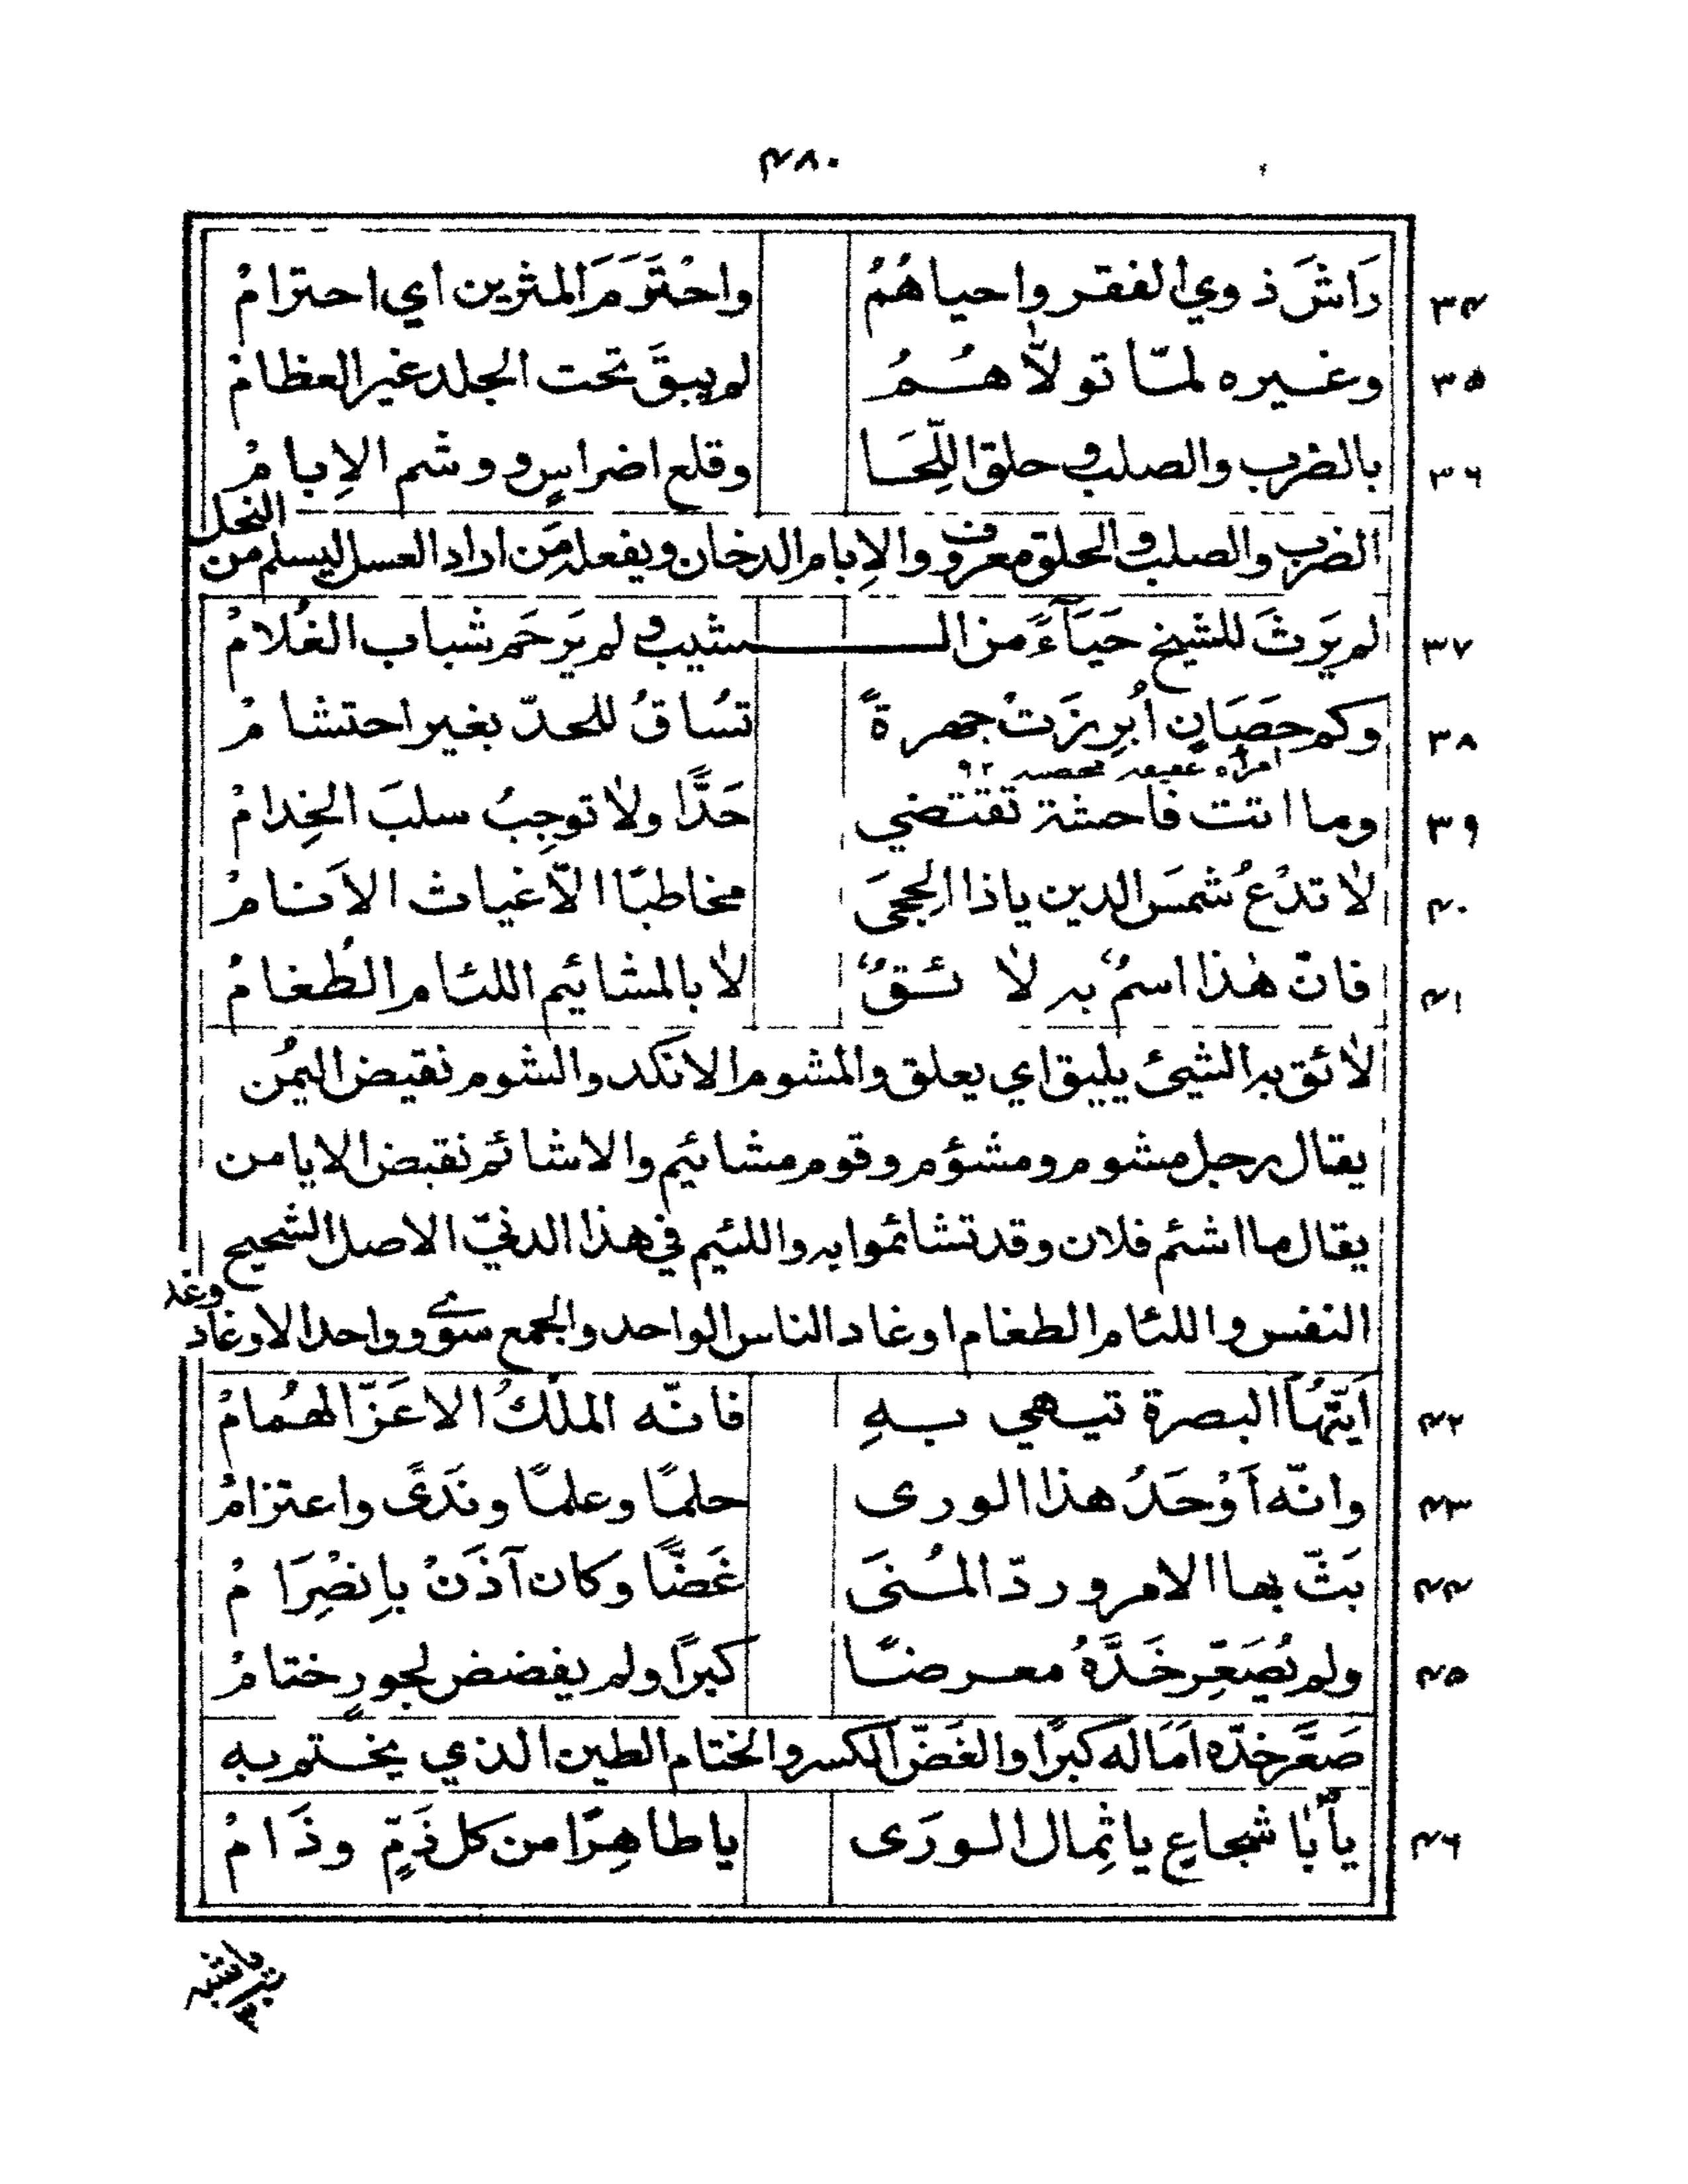 ۴۸۰
۳۴ رَاشَ ذوي الفقر واحياهُمُ واحْتَرَمَ المثرين اي احترامْ
۳۵ وغيره لمّا تولاّهُمُ لم يبقَ تحت الجلد غير العظامْ
۳۶ بالضرب والصلب وحلق اللِّحَا وقلع اضراسٍ ووشم الإيامْ
الضرب والصلب والحلق معروف والإيام الدخان ويفعله مَن اراد العسل ليسلم من النحل
۳۷ لم يَرثَ للشيخ حَيَآءً من الشيب ولم يَرحَم شباب الغُلامْ
۳۸ وكم حصَانٍ اُبرِزَتْ جهرةً تسُاقُ للحدّ بغير احتشامْ
امرأه عفيفه محصنه ۹۲
۳۹ وما اتت فاحشة تقتضي حَدًّا ولا توجِبُ سلبَ الخِدامْ
۴۰ لا تدْعُ شمسَ الدين ياذا الحِجىَ مخاطبًا الاّ غياث الاَنامْ
۴۱ فانّ هٰذا اسمٌ به لائقٌ لا بالمشائيم اللئام الطُغامْ
لائق به الشيئ يليق اي يعلق والمشوم الانكد والشوم نقيض اليُمن
يقال رجل مشوم ومشؤم وقوم مشائيم والاشائم نقيض الايامن
يقال ما اشئم فلان وقد تشائموا به واللئيم في هذا الدنيّ الاصل الشحيح
النفس واللئام الطغام اوغاد الناس الواحد والجمع سوے وواحد الاوغاد وغد
۴۲ اَيّتُهَا البصرة تيهي بهِ فانّه الملْكُ الاعَزّ الهُمامْ
۴۳ وانّه اَوْحَدُ هذا الورى حلمًا وعلمًا ونَدىً واعتزامْ
۴۴ بَثّ بها الامر وردّ المُنىَ غَضًّا وكان آذَنْ بانصْرَامْ
۴۵ ولم يُصَعِّر خَدَّهُ معرضًا كبرًا ولم يفضض لجورٍ ختامْ
صَعَّر خدّه اَمَاله كبرًا والفَضّ الكسر والختام الطين الذي يختم به
۴۶ يا اَبَا شجاعٍ يا ثِمال الورَى يا طاهِرًا من كل ذَمٍّ وذَامْ